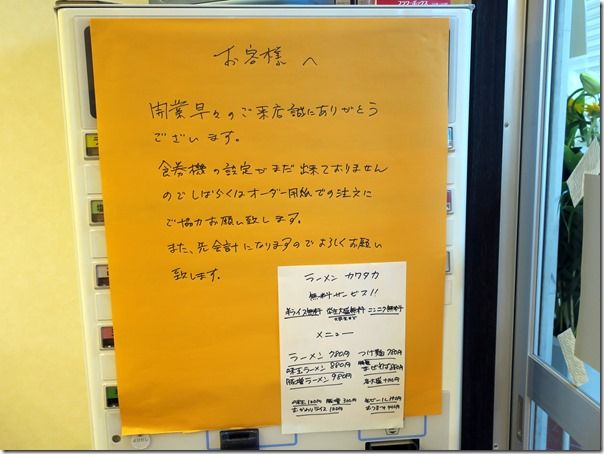 お客様へ
開業早々のご来店誠にありがとう
ございます。
食券機の設定がまだ出来ておりません
のでしばらくはオーダー用紙での注文に
ご協力お願い致します。
また、先会計になりますのでよろしくお願い
致します。
ラーメン カワタカ
無料サービス!!
半ライス無料 学生大盛無料 ニンニク無料
メニュー
ラーメン 780円 つけ麺 780円
味玉ラーメン 880円
豚増ラーメン 980円
味玉 100円 豚増 300円
おかわりライス 100円